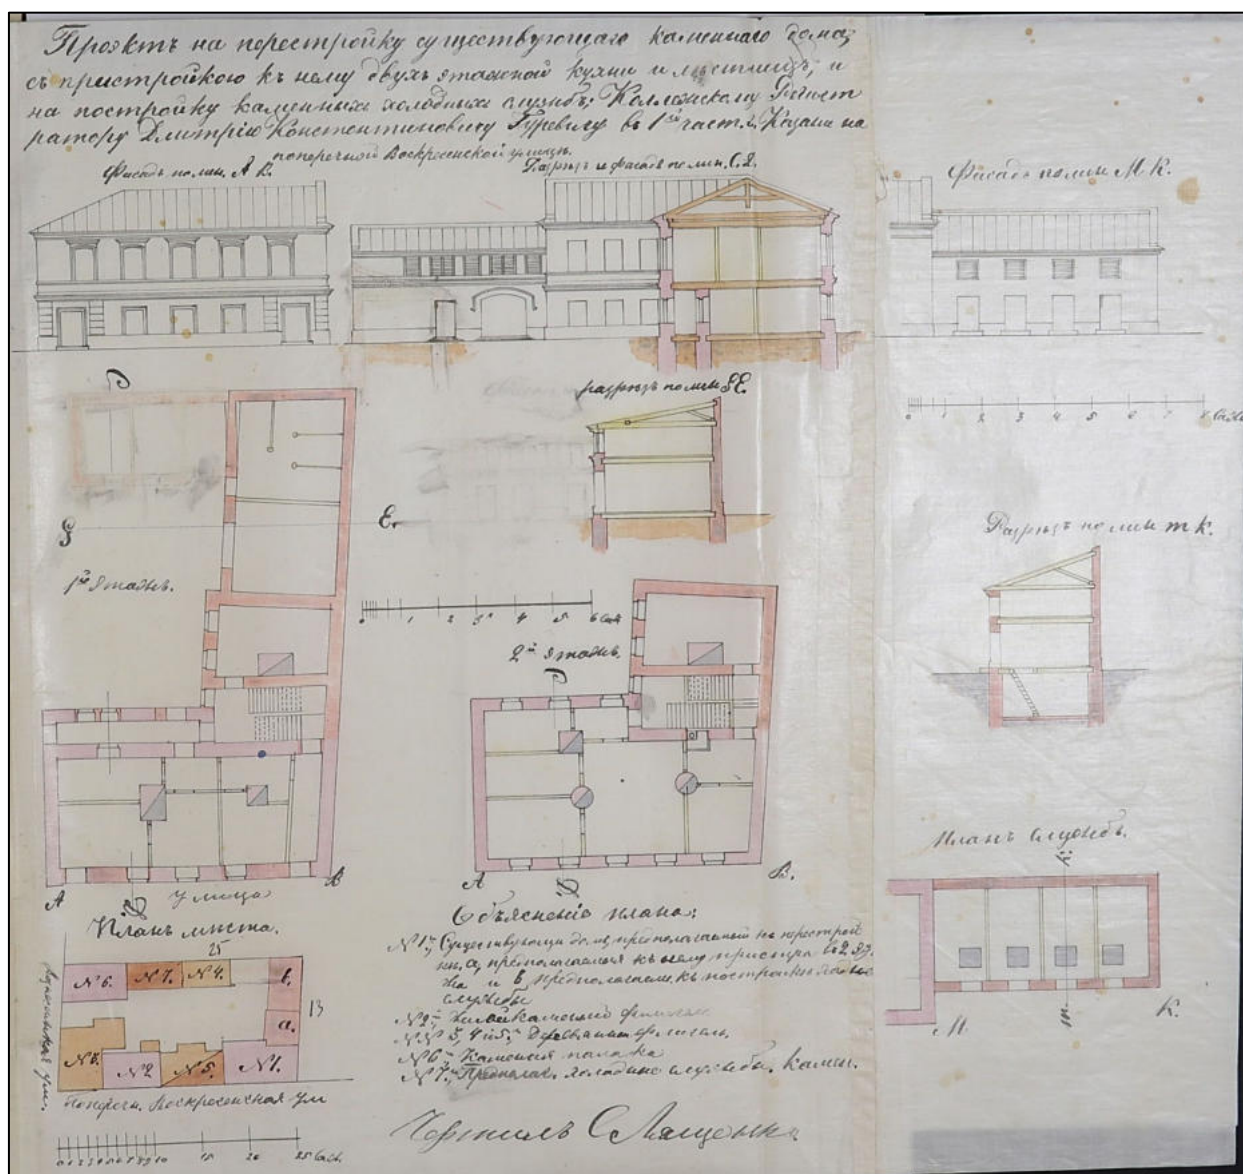 Проэктъ на перестройку существующаго каменнаго дома,
съ пристройкою къ нему двухъ этажной кухни и лѣстницъ, и
на постройку каменныхъ холодныхъ службъ; Коллежскому Регист
ратору Дмитрію Константиновичу Гуревичу въ 1й части г. Казани на
поперечной Воскресенской улицѣ.
Фасадъ по лин. А В.
Разрѣзъ и фасадъ по лин. С. D.
Фасадъ по лин М К.
0 1 2 3 4 5 6 7 8 Саж.
разрѣзъ по лин
Разрѣзъ по лин m к.
Е.
1й Этажъ.
0 1 2 3 4 5 6 Саж
2й этажъ.
А В
Улица
А В.
Планъ службъ.
М. К.
Планъ мѣста.
25
№ 6. № 7. № 4. b.
13
a.
№ 3. № 2 № 5. № 1.
Попереч. Воскресенская Ул
15 20 25 Саж.
Объясненіе плана:
№ 1й, Существующ домъ, предполагаемый къ перестрой
а, предполагаемая къ нему пристр въ 2 эта
жа и b предполагаем. къ постройкѣ
службы
№ 2й Жилой каменный флигель
№№ 3, 4 и 5й Деревянны флигель.
№ 6й Каменная палатка
№ 7й Предполаг. холодные службы. Камен.
Чертилъ С Лященко